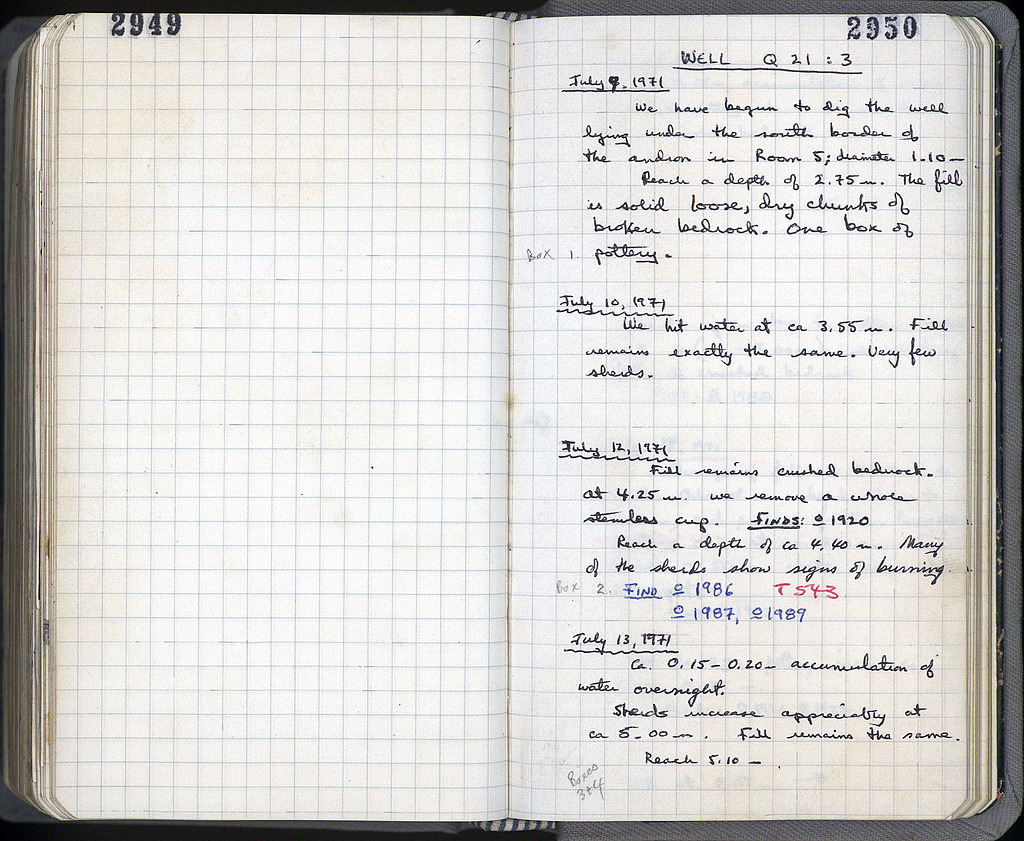 2949
2950
WELL Q 21 : 3
July 9, 1971
We have begun to dig the well
lying under the south border of
the andron in Room 5; diameter 1.10 m
Reach a depth of 2.75 m. The fill
is solid loose, dry chunks of
broken bedrock. One box of
Box 1. pottery.
July 10, 1971
We hit water at ca 3.55 m. Fill
remains exactly the same. Very few
sherds.
July 12, 1971
Fill remains crushed bedrock.
at 4.25 m. we remove a whole
stemless cup. FINDS: o 1920
Reach a depth of ca 4.40 m. Many
of the sherds show signs of burning.
Box 2. FIND o 1986 T 543
o 1987, o 1989
July 13, 1971
Ca. 0.15 - 0.20 m accumulation of
water overnight.
Sherds increase appreciably at
ca 5.00 m. Fill remains the same.
Reach 5.10 m.
Boxes
3+4